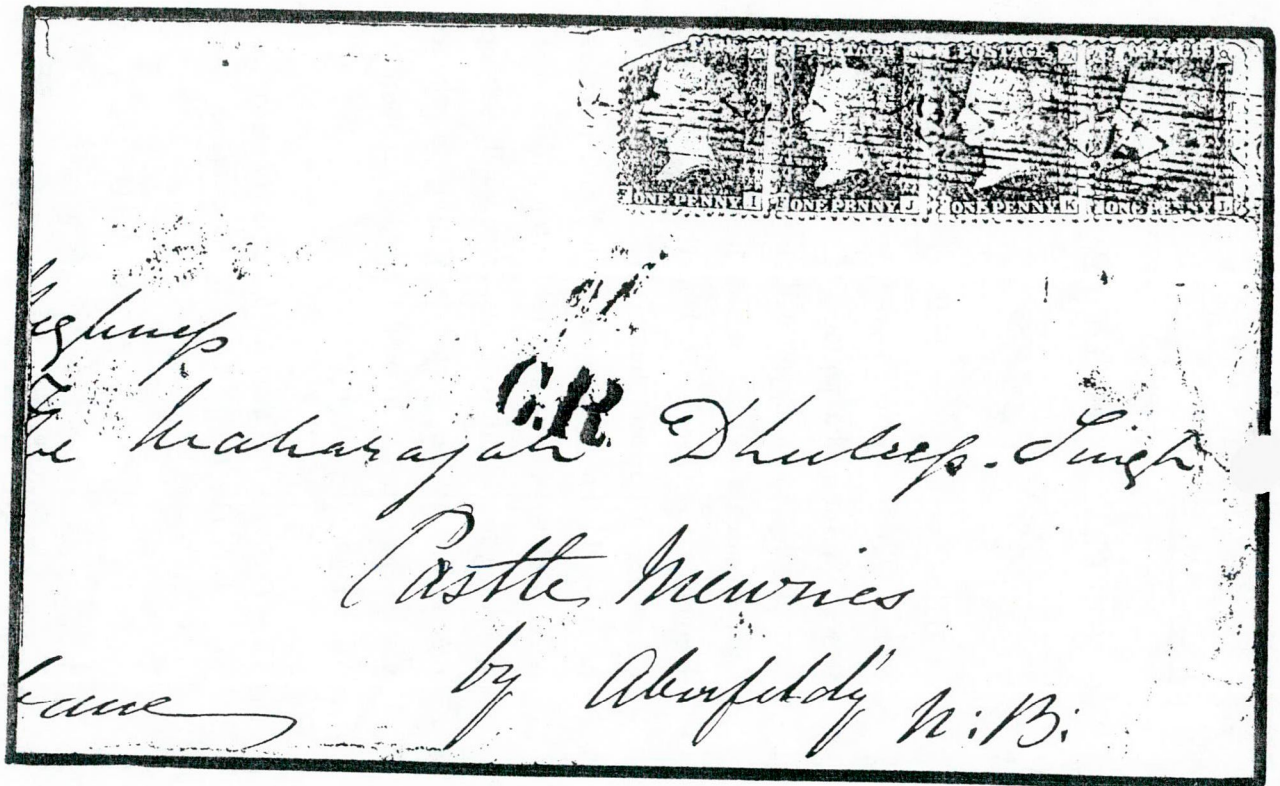 POSTAGE POSTAGE
ONE PENNY I ONE PENNY J ONE PENNY K ONE PENNY L
C.R.
The Maharajah Dhuleep. Singh
Castle Menzies
by Aberfeldy N:B: